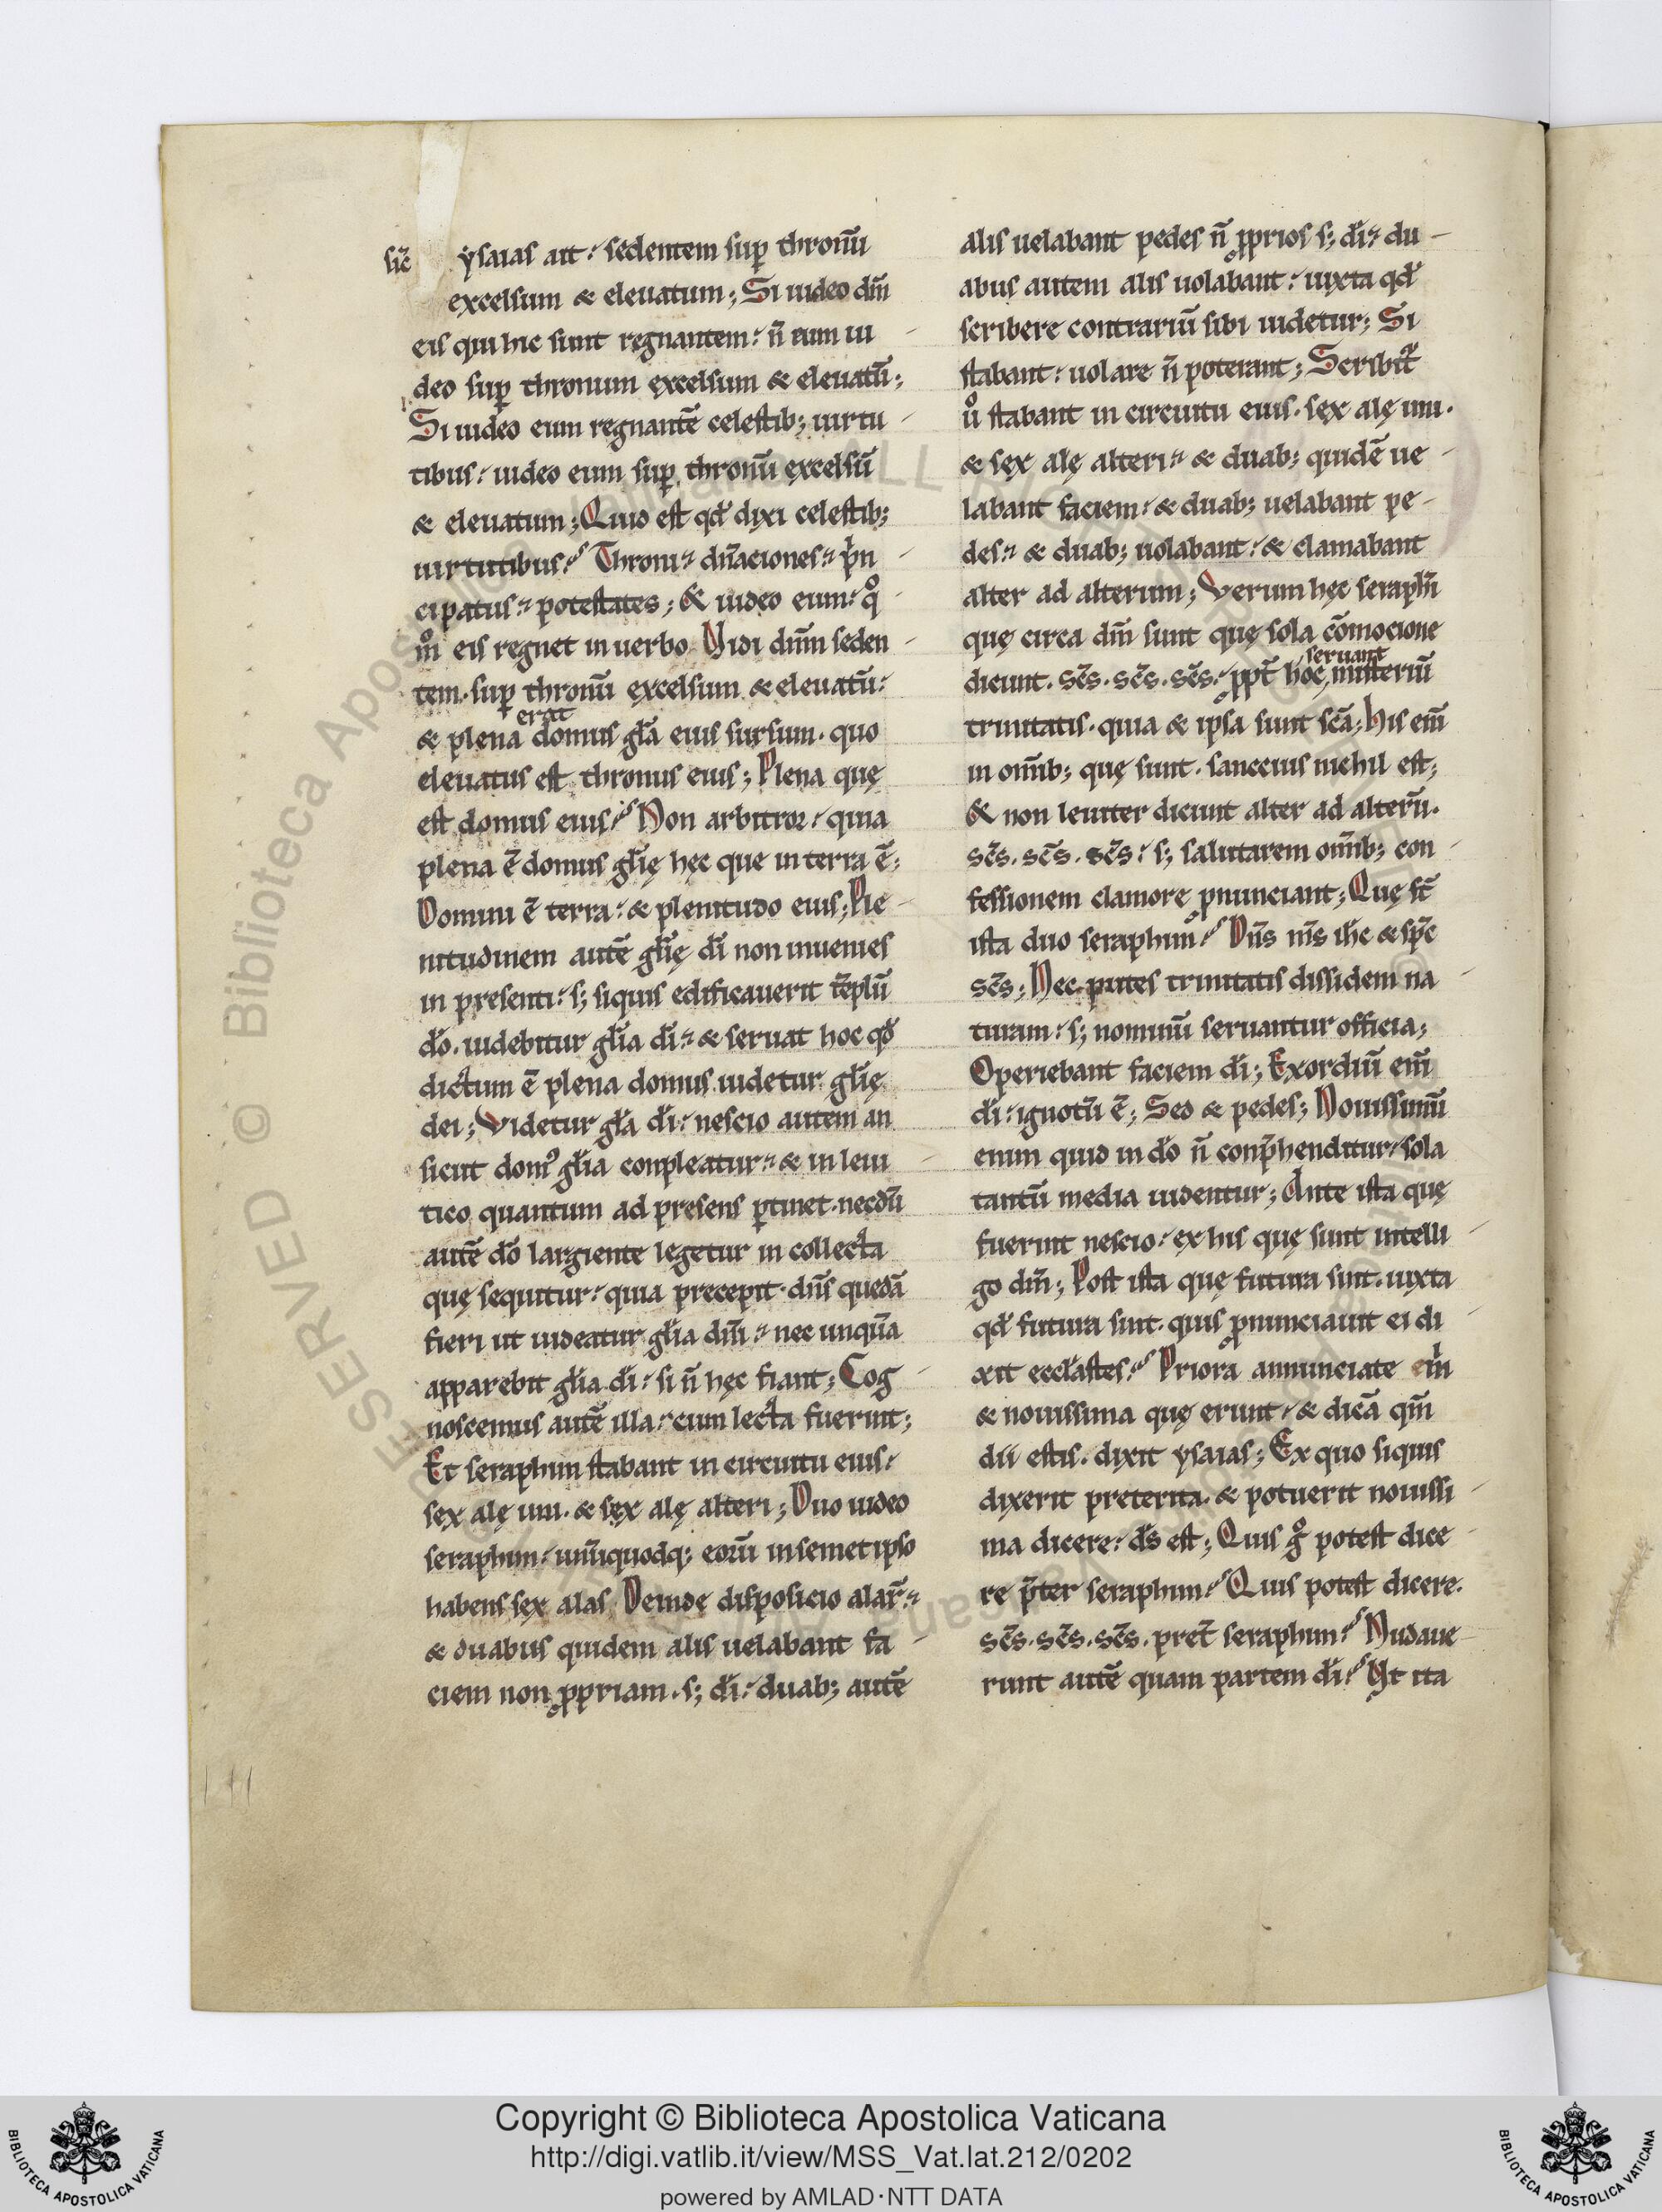 sic̄ ysaias ait: sedentem suꝑ thronū
excelsum & eleuatum; Si uideo dn̄m
eis qui hic sunt regnantem: n̄ eum ui
deo suꝑ thronum excelsum & eleuatū;
Si uideo eum regnantē celestib; uirtu
tibus: uideo eum suꝑ thronū excelsū
& eleuatum; Quid est qd̄ dixi celestib;
uirtutibus? Throni: dn̄aciones: p̄n
cipatus: potestates; & uideo eum: qͦ
mͦ eis regnet in uerbo. Vidi dn̄m seden
tem. suꝑ thronū excelsum & eleuatū:
erat
& plena domus gl̄a eius sursum. quo
eleuatus est thronus eius; Plena quę
est domus eius? Non arbitror: quia
plena ē domus gl̄ię hęc que in terra ē;
Domini ē terra: & plenitudo eius; Ple
nitudinem autē gl̄ię dī non inuenies
in presenti: s; siquis edificauerit tēplū
dō. uidebitur gl̄ia dī: & seruat hoc qd̄
dictum ē plena domus. uidetur gl̄ię
dei; Videtur gl̄a dī: nescio autem an
sicut domꝰ gl̄ia conpleatur: & in leui
tico quantum ad presens ꝑtinet. necdū
autē dō largiente legetur in collecta
quę sequitur: quia precepit. dn̄s quedā
fieri ut uideatur gl̄ia dn̄i: nec unquā
apparebit gl̄ia dī: si n̄ hęc fiant; Cog
noscemus autē illa: cum lecta fuerint;
Et seraphin stabant in circuitu eius:
sex alę uni. & sex alę alteri; Duo uideo
seraphin: unūquodq; eorū in semetipso
habens sex alas. Deinde disposicio alar̄:
& duabus quidem alis uelabant fa
ciem non ꝓpriam. s; dī: duab; autē
alis uelabant pedes n̄ ꝓprios s; dī: du
abus autem alis uolabant: iuxta qd̄
scribere contrariū sibi uidetur; Si
stabant: uolare n̄ poterant; Scribit̄
uͦ stabant in circuitu eius. sex alę uni.
& sex alę alteri: & duab; quidē ue
labant faciem: & duab; uelabant pe
des: & duab; uolabant: & clamabant
alter ad alterum; Verum hęc seraphī
quę circa dn̄m sunt quę sola cōmocione
seruant
dicunt. sc̄s. sc̄s. sc̄s: ꝓpt̄ hoc, misteriū
trinitatis. quia & ipsa sunt sc̄a; his enī
in om̄ib; quę sunt. sanccius nichil est;
& non leuiter dicunt alter ad alterū.
sc̄s. sc̄s. sc̄s: s; salutarem om̄ib; con
fessionem clamore ꝓnunciant; Quę st̄
ista duo seraphim? Dn̄s nr̄s ih̄c & sp̄c
sc̄s; Nec putes trinitatis dissidem na
turam: s; nominū seruantur officia;
Operiebant faciem dī; Exordiū enī
dī: ignotū ē; Sed & pedes; Nouissimū
enim quid in dō n̄ conp̄henditur: sola
tantū media uidentur; Ante ista quę
fuerint nescio: ex his quę sunt intelli
go dm̄; Post ista quę futura sint. iuxta
qd̄ futura sint. quis ꝓnunciauit ei di
xit eccl̄astes? Priora annunciate m̄
& nouissima quę erunt: & dicā qm̄
dii estis. dixit ysaias; Ex quo siquis
dixerit preterita. & potuerit nouissi
ma dicere: dš est; Quis gͦ potest dice
re p̄ter seraphim? Quis potest dicere.
sc̄s. sc̄s. sc̄s. pret̄ seraphim? Nudaue
runt autē quam partem dī? Vt ita
Copyright © Biblioteca Apostolica Vaticana
http://digi.vatlib.it/view/MSS_Vat.lat.212/0202
powered by AMLAD·NTT DATA
BIBLIOTECA APOSTOLICA VATICANA
BIBLIOTECA APOSTOLICA VATICANA